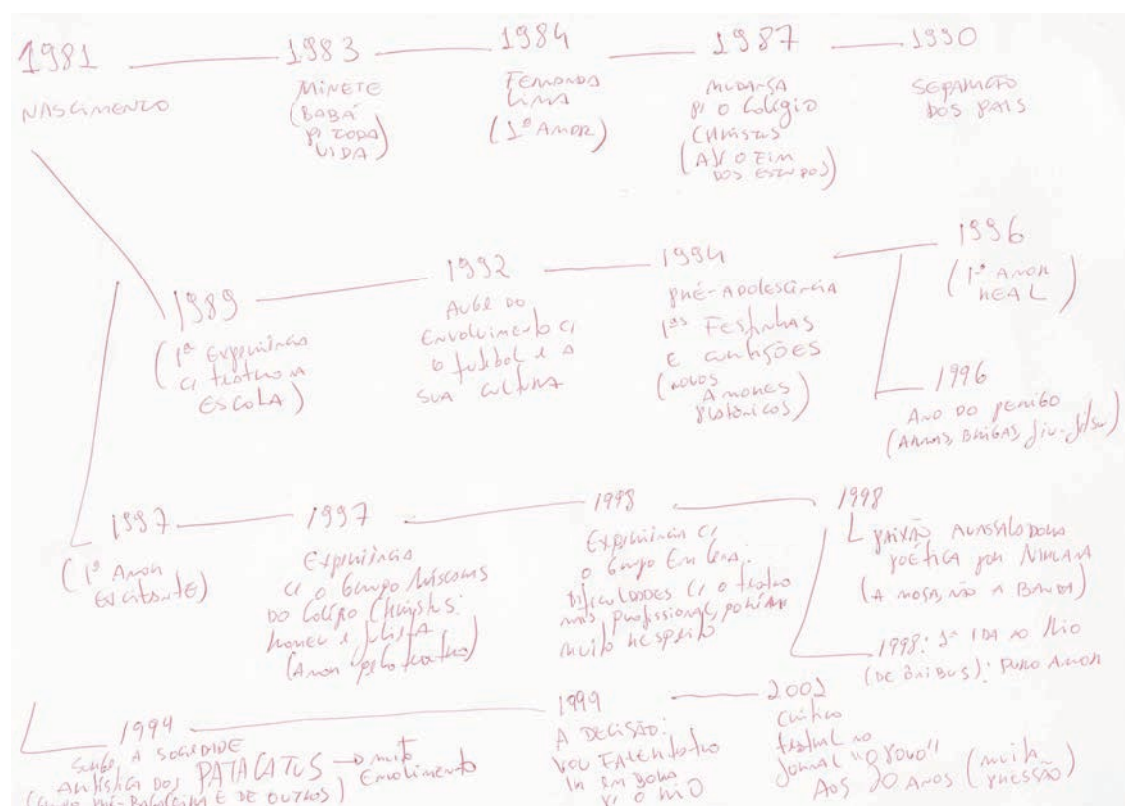 1981
NASCIMENTO
1983
MINETE
(BABÁ
P/ TODA
VIDA)
1984
FERNANDA
LIMA
(1º AMOR)
1987
MUDANÇA
P/ O COLÉGIO
CHRISTUS
(ATÉ O FIM
DOS ESTUDOS)
1990
SEPARAÇÃO
DOS PAIS
1989
(1ª Experiência
c/ teatro na
ESCOLA)
1992
AUGE DO
Envolvimento c/
o futebol e a
SUA CULTURA
1994
PRÉ-ADOLESCÊNCIA
1as FESTINHAS
E CURTIÇÕES
(NOVOS
AMORES
PLATÔNICOS)
1996
(1º AMOR
REAL)
1996
ANO DO PERIGO
(ARMAS, BRIGAS, Jiu-Jitsu)
1997
(1º Amor
EXCITANTE)
1997
Experiência
c/ o Grupo
DO Colégio Christus:
Romeu e Julieta
(Amor pelo teatro)
1998
Experiência c/
o Grupo Em Cena:
dificuldades c/ o teatro
mais profissional, porém
muito RESPEITO
1998
PAIXÃO AVASSALADORA
POÉTICA POR NIRVANA
(A MOÇA, NÃO A BANDA)
1998: 1ª IDA AO RIO
(DE ÔNIBUS): PURO AMOR
1999
Surge A SOCIEDADE
ARTÍSTICA DOS PATACATUS → muito
Envolvimento
E DE OUTROS)
1999
A DECISÃO:
VOU FAZER teatro
P/ O RIO
2002
Crítico
teatral no
JORNAL "O POVO"
AOS 20 ANOS (muita
PRESSÃO)